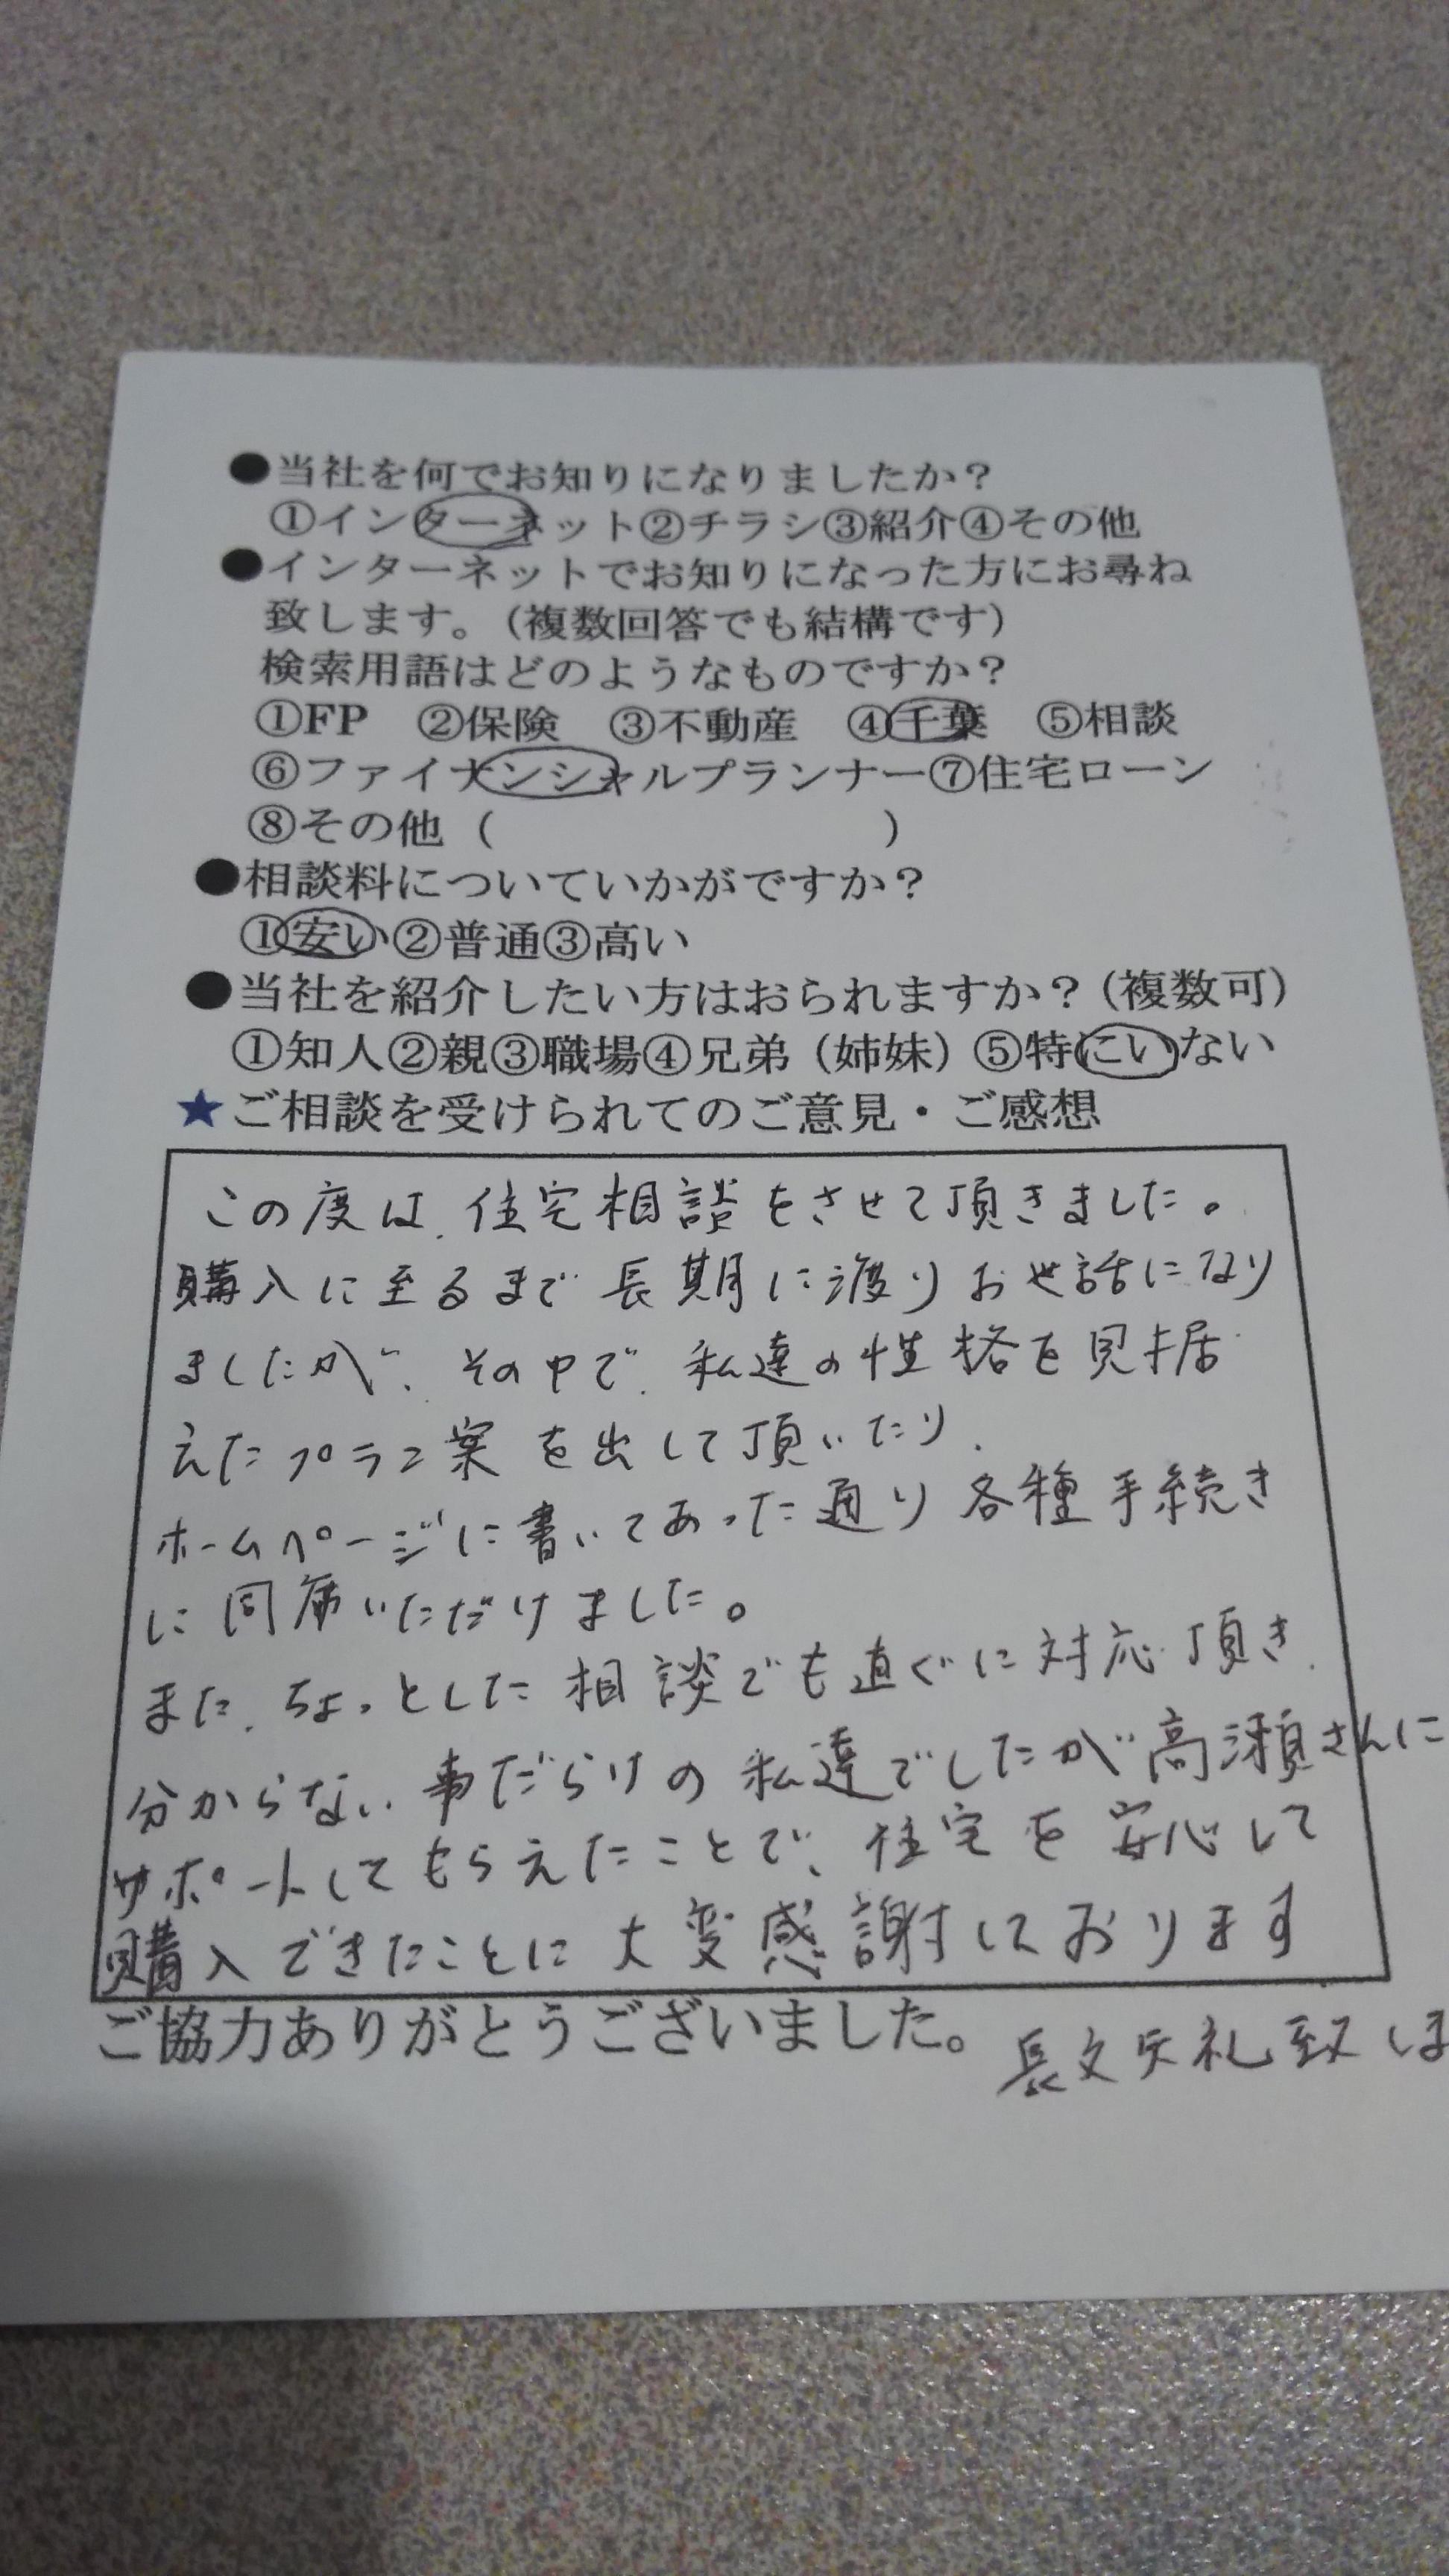 ●当社を何でお知りになりましたか？
①インターネット②チラシ③紹介④その他
●インターネットでお知りになった方にお尋ね
致します。（複数回答でも結構です）
検索用語はどのようなものですか？
①FP　②保険　③不動産　④千葉　⑤相談
⑥ファイナンシャルプランナー⑦住宅ローン
⑧その他（　　　　　　　　）
●相談料についていかがですか？
①安い②普通③高い
●当社を紹介したい方はおられますか？（複数可）
①知人②親③職場④兄弟（姉妹）⑤特にいない
★ご相談を受けられてのご意見・ご感想
この度は、住宅相談をさせて頂きました。
購入に至るまで長期に渡りお世話になり
ましたが、その中で、私達の性格を見据
えたプラン案を出して頂いたり、
ホームページに書いてあった通り各種手続き
に同席いただけました。
また、ちょっとした相談でも直ぐに対応頂き、
分からない事だらけの私達でしたが高瀬さんに
サポートしてもらえたことで、住宅を安心して
購入できたことに大変感謝しております
ご協力ありがとうございました。
長文失礼致しま